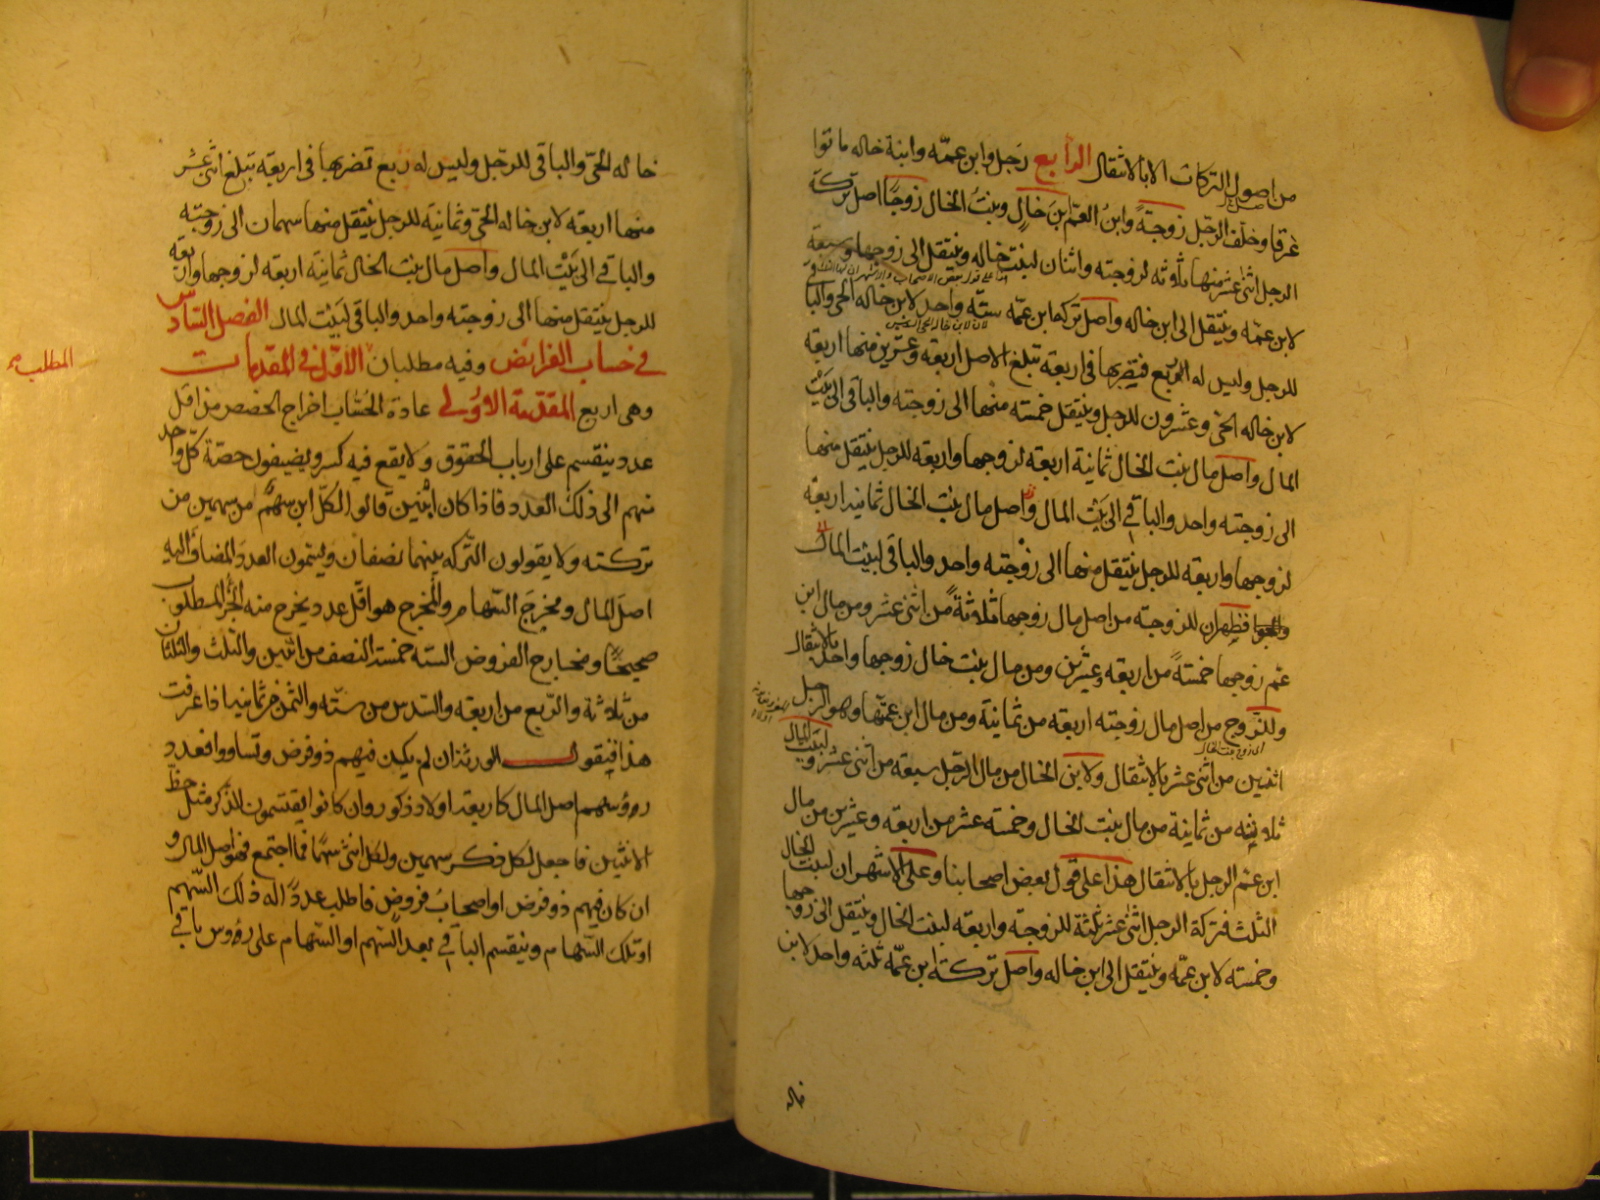 من اصول التركات الا بالانتقال الرابع رجل وابن عمّه وابنة خاله ماتوا
غرقا وخلّف الرجل زوجةً وابنُ العمّ بنَ خالٍ وبنتُ الخال زوجًا اصل تركة
الرجل اثنى عشر منها ثلاثه لزوجته واثنان لبنت خاله وينتقل الى زوجها وسبعة
لابن عمّه وينتقل الى ابن خاله واصل تركة ابن عمّه ستّه واحد لابن خاله الحى والباقى
للرجل وليس له الربع فيضربها فى اربعة تبلغ الاصل اربعه وعشرين منها اربعة
لابن خاله الحى وعشرون للرجل وينتقل خمسته منها الى زوجته والباقى الى بَيْت
المال واصل مال بنت الخال ثمانية اربعه لزوجها واربعه للرجل ينتقل منها
الى زوجته واحد والباقى الى بَيْت المال واصل مال بنت الخال ثمانيه اربعه
لزوجها واربعه للرجل ينتقل منها الى زوجته واحد والباقى لبيت المال
فظهر ان للزوجة من اصل مال زوجها ثلاثةً من اثنى عشر ومن مال ابن
عم زوجها خمسةً من اربعه وعشرين ومن مال بنت خال زوجها واحد بالانتقال
وللزوج من اصل مال زوجته اربعه من ثمانية ومن مال ابن عمّتها وهو الرجل
اثنين من اثنى عشر بالانتقال ولابن الخال من مال الرجل سبعه من اثنى عشر ولبيت المال
اى زوج بنت الخال
ثلاثة من ثمانية من مال بنت الخال وخمسة عشر من اربعه وعشرين من مال
ابن عم الرجل بالانتقال هذا على قول بعض اصحابنا وعلى الاشهر ان لبنت الخال
الثلث فتركة الرجل اثنى عشر ثلثة للزوجة واربعه لبنت الخال وينتقل الى زوجها
وخمسته لابن عمّه وينتقل الى ابن خاله واصل تركته ابن عمّه ثلثه واحد لابن
خاله
خاله الحىّ والباقى للرجل وليس له ربع تضربها فى اربعة تبلغ اثنى عشر
منها اربعه لابن خاله الحىّ وثمانية للرجل ينتقل منها سهمان الى زوجته
والباقى الى بَيْت المال واصل مال بنت الخال ثمانية اربعه لزوجها واربعة
للرجل ينتقل منها الى زوجته واحد والباقى لبَيْت المال الفصل السادس
فى حساب الفرائض وفيه مطلبان الاوّل فى المقدمات
المطلب
وهى اربع المقدمة الاوُلى عادة الحُسّاب اخراج الحصص من اقل
عدد ينقسم على ارباب الحقوق ولا يقع فيه كسر ويضيفون حصّة كلّ واحد
منهم الى ذلك العدد فاذا كان اثْنين قالوا لكلّ ابن سهمٌ من سهمين من
تركته ولا يقولون التّركه بينهما نصفان ويسمّون العدد المضاف اليه
اصلَ المال ومخرجَ السّهام والمخرج هو اقل عدد يخرج منه الجُزْ المطلوب
صحيحًا ومخارج الفروض الستّه خمسة النصف من اثنين والثلث والثلثان
من ثلاثة والرّبع من اربعه والسّدس من ستّه والثمن من ثمانية اذا عرفت
هذا فنقول الورثة ان لم يكن فيهم ذو فرض وتساووا فعدد
رؤسهم اصل المال كاربعة اولاد ذكور وان كانوا يقتسمون للذكر مثل حظّ
الانثيين فاجعل لكل ذكر سهمين ولكل انثى سهمًا فما اجتمع فهو اصل المال و
ان كان فيهم ذو فرض او اصحابُ فروض فاطلب عددًا له ذلك السّهم
او تلك السّهام وينقسم الباقى بعد السّهم او السّهام على رؤوس باقى